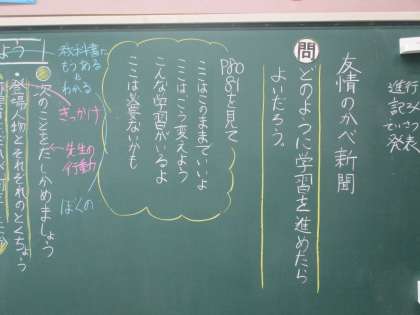 進行
記ろ
ていさつ
発表
友情のかべ新聞
問
どのように学習を進めたら
よいだろう。
P80
81を見て
ここはこのままでいいよ
ここはこう変えよう
こんな学習がいるよ
ここは必要ないかも
教科書に
もうあると
われる
きっかけ
先生の
行動
ぼくの
次のことをたしかめましょう
・登場人物とそれぞれのとくちょう